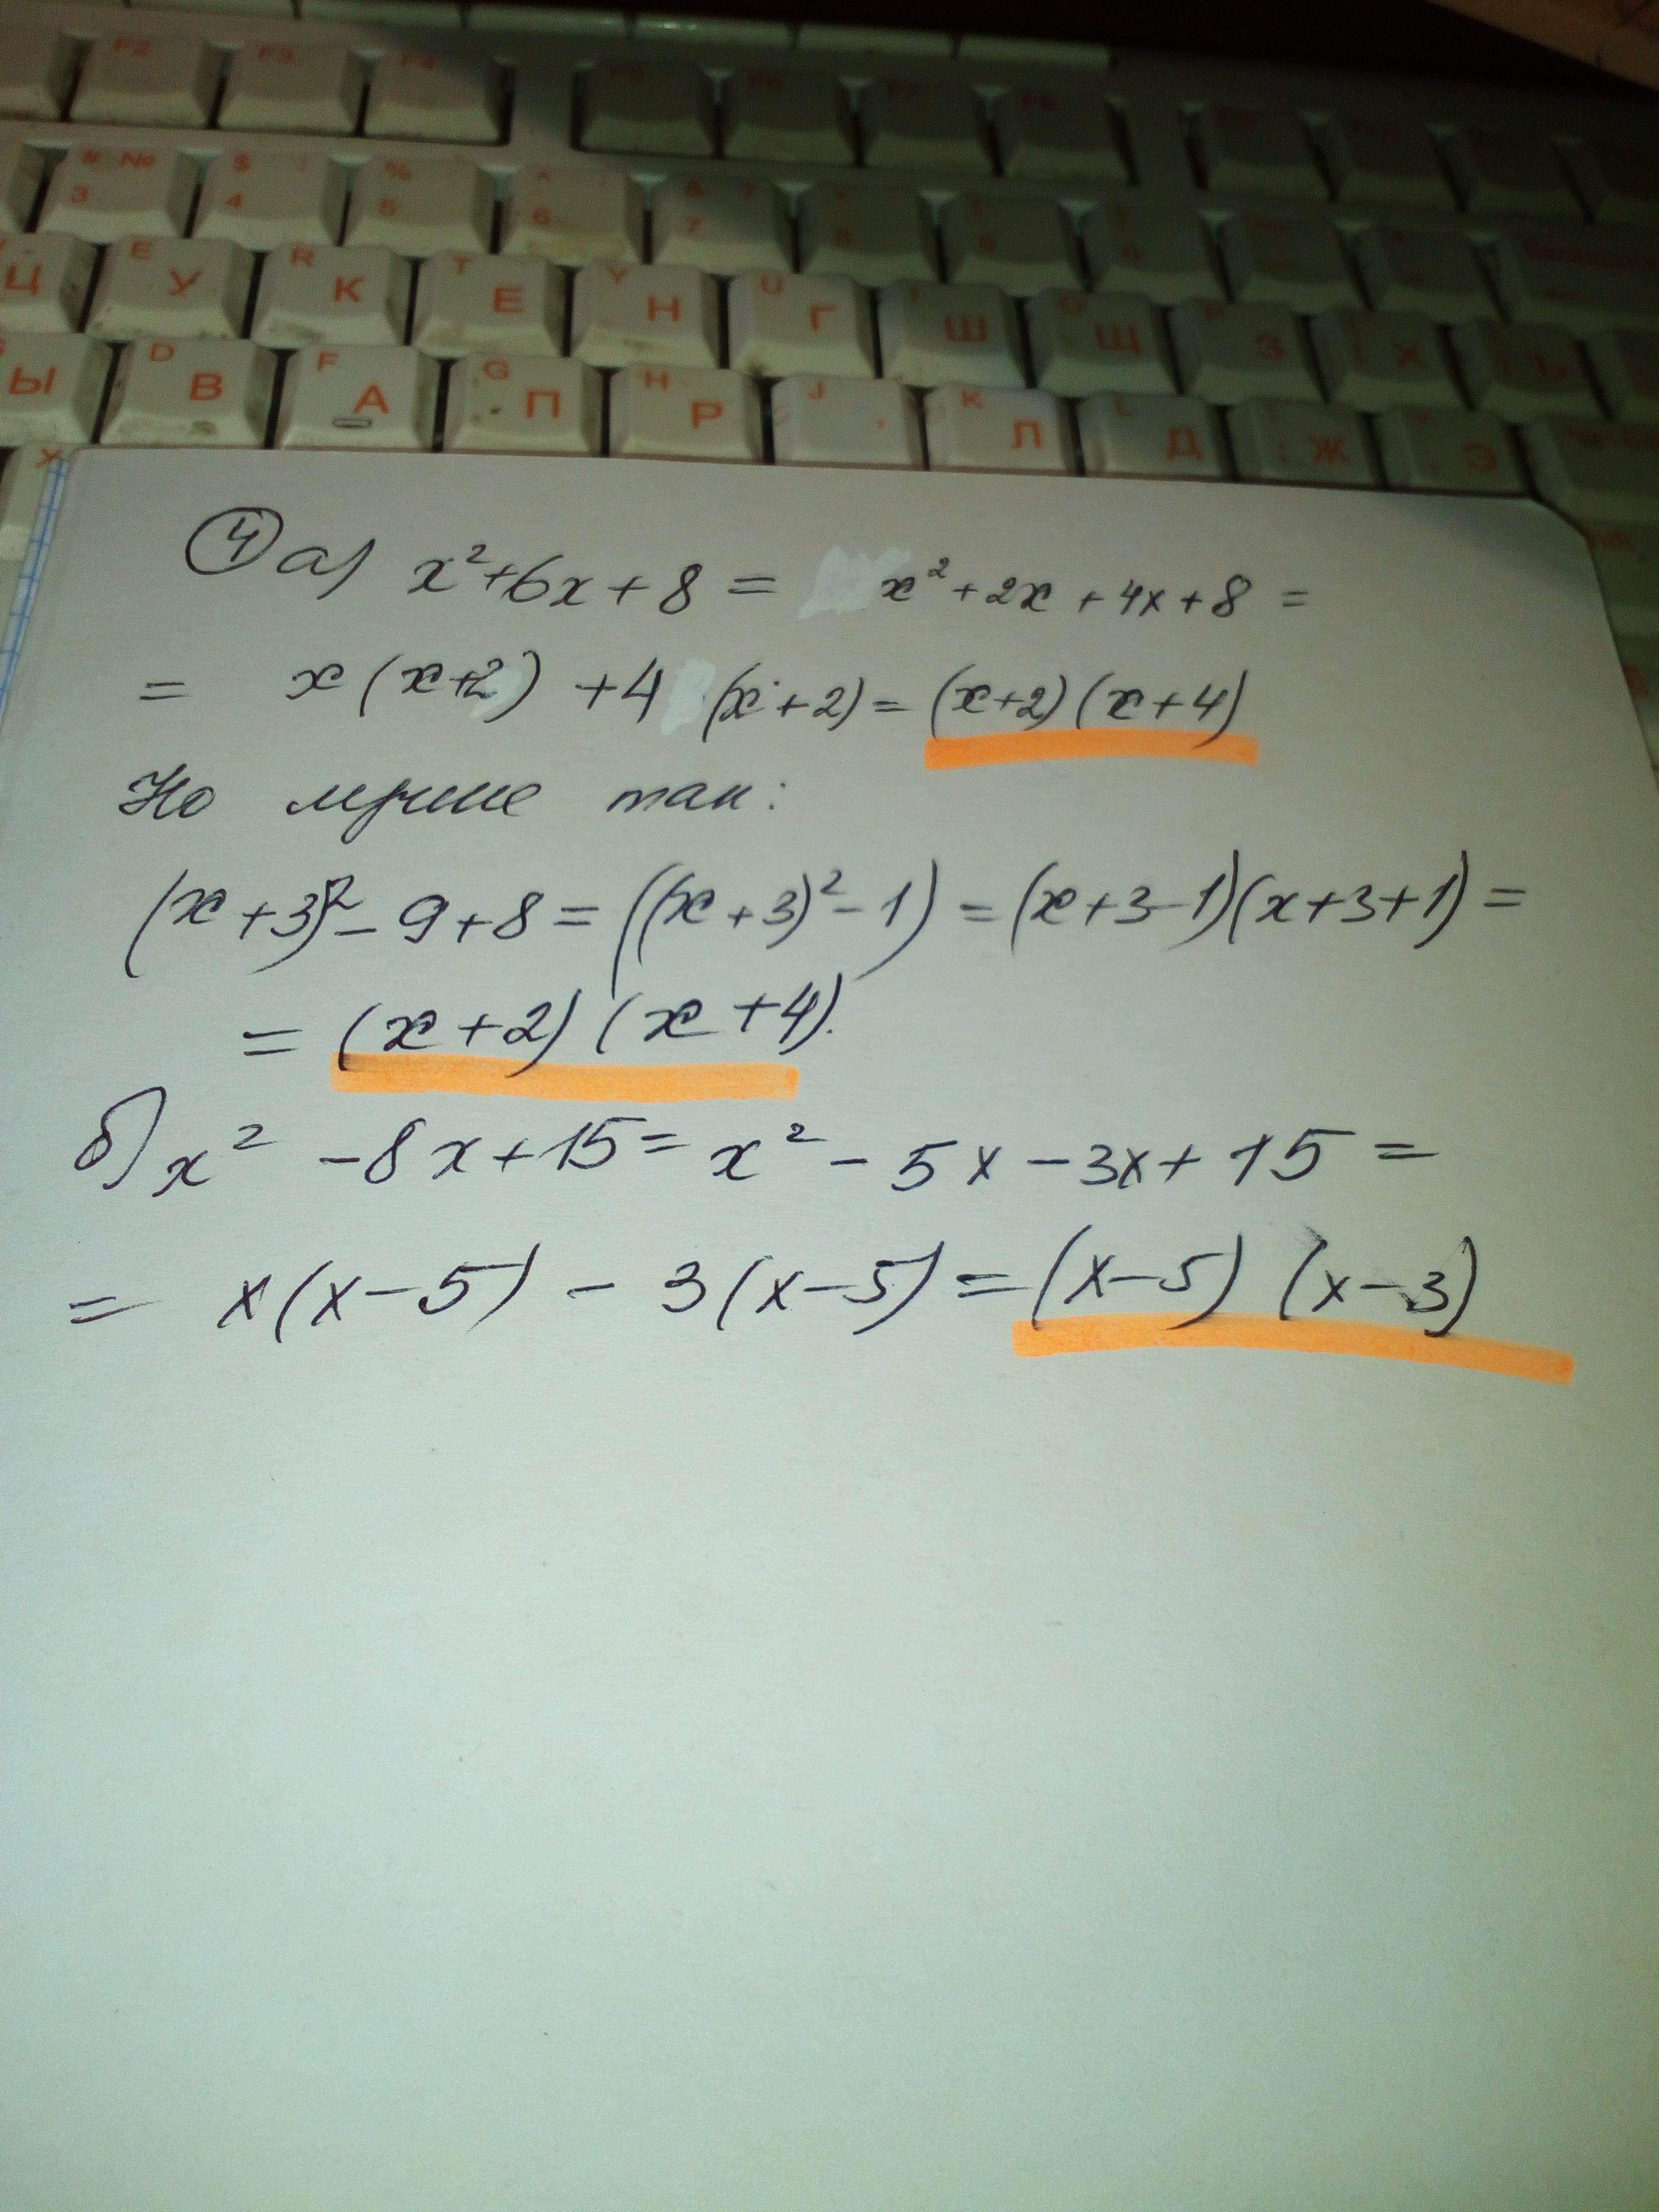 F2 F3 F4 F5 F6 F7 F8
# № 3 $ ; 4 % 5 ^ : 6 & 7
Ц E У R К T Е Y Н U Г Ш O Щ З Х Ъ
Ы D В F А G П H Р J K Л L Д Ж Э
④ а) x²+6x+8 = x²+2x+4x+8 =
= x(x+2)+4(x+2)=(x+2)(x+4)
Но лучше так:
(x+3)²-9+8=((x+3)²-1)=(x+3-1)(x+3+1)=
=(x+2)(x+4).
б) x²-8x+15=x²-5x-3x+15=
= x(x-5)-3(x-5)=(x-5)(x-3)